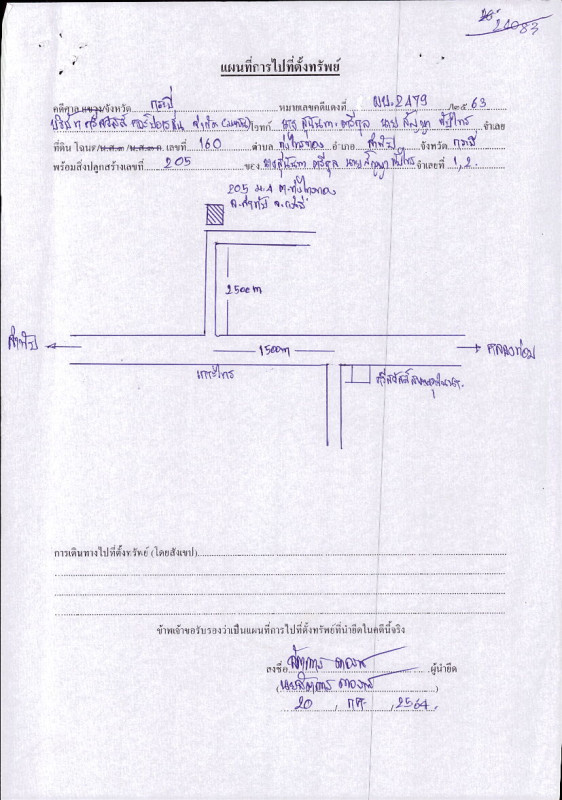 24083
แผนที่การไปที่ตั้งทรัพย์
คดีศาล แขวง/จังหวัด กระบี่ หมายเลขคดีแดงที่ ผบ.2479 /๒๕ 63
บริษัท ศรีสวัสดิ์ คอร์ปอเรชั่น จำกัด (มหาชน) โจทก์ นาง สุนันทา ตรีกุล นาย สัญญา ทับไทร จำเลย
ที่ดิน โฉนด/น.ส.๓/น.ส.๓ ก. เลขที่ 160 ตำบล ทุ่งไทรทอง อำเภอ ลำทับ จังหวัด กระบี่
พร้อมสิ่งปลูกสร้างเลขที่ 205 ของ นางสุนันทา ตรีกุล นาย สัญญา ทับไทร จำเลยที่ 1, 2.
205 ม.4 ต.ทุ่งไทรทอง
อ.ลำทับ จ.กระบี่
250 m
ลำทับ
150 m
คลองท่อม
การเดินทางไปที่ตั้งทรัพย์ (โดยสังเขป)
ข้าพเจ้าขอรับรองว่าเป็นแผนที่การไปที่ตั้งทรัพย์ที่นำยึดในคดีนี้จริง
ลงชื่อ ผู้นำยึด
20 , กค. , 2564,